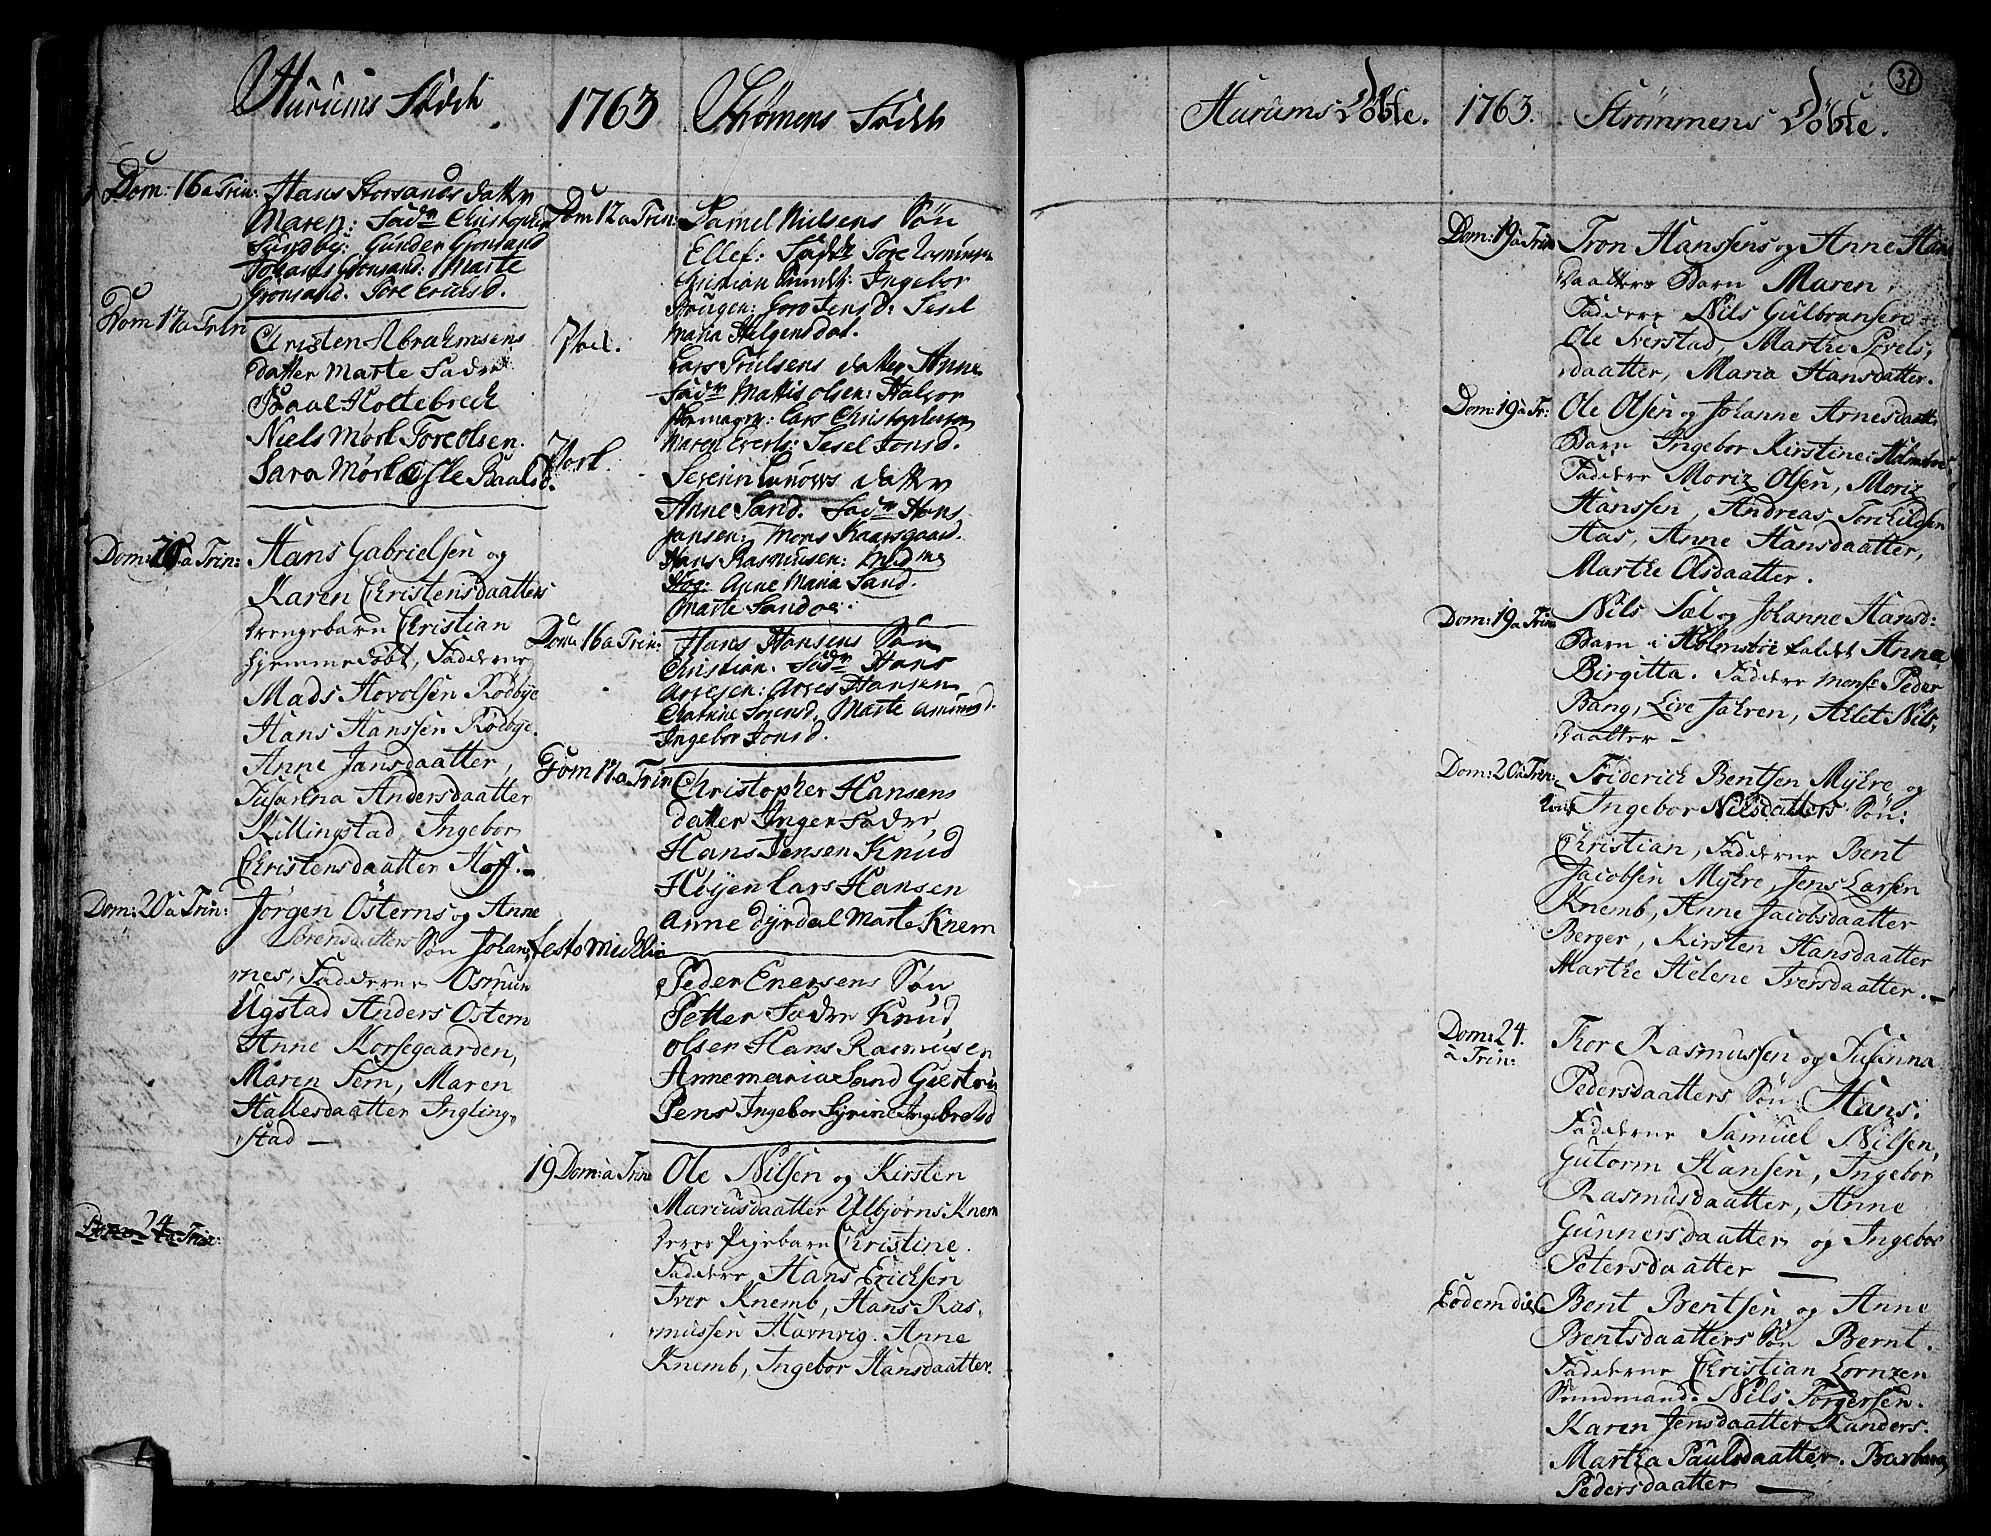 Hurums Födde
1763
Strømens Födde
Dom: 16 a Trin:
Hans Storsands datter
Maren: Fadr Christopher
Sundby: Gunder Gronsand
Johanes Gronsand: Marte
Gronsand. Tore Ericsd.
Dom 17 a Trin
Christen Abrahmsens
datter Marte Fadre
Paal Holtebreck
Niels Mørk Tore olsen.
Sara Mørk Paalsd.
Dom: a Trin:
Hans Gabrielsen og
Karen Christensdaatters
drengebarn Christian
hiemmedøbt, Fadderne
Mads Hovolsen Rødbye
Hans Hanssen Rødbye.
Anne Jansdaatter,
Susanna Andersdaatter
Killingstad, Ingebor
Christensdaatter Hoff.
Dom: 20 a Trin:
Jørgen Österns og Anne
Sørensdatters Søn Johan„
nes, Fadderne Osmun
Ugstad Anders Ostern
Anne Korsegaarden,
Maren Sern, Maren
Hallesdaatter Ingling„
stad —
Dom 24 a Trin:
Dom 12 a Trin:
Samel Nielsens Sön
Ellef: Faddr Tore Rasmusen
Christian: Ingebor
Goro Jensd: Sesel
Maria Helgensdat.
Lars Truelsens datter Anne
Fadr Mattis olsen: Halvor
Lars Christophersen
Maren Everts: Sesel Jonsd.
Severin datter
Anne Sand. Fadr Hans
Jansen: Mons Kaarsgaard.
Hans Rasmusen: Mdme
Høg: Anne Maria Sand.
Marte Sandøe:
Dom: 16 a Trin:
Hans Hansens Søn
Christian. Fadr Hans
Arvesen: Arves Hansen
Cathrine Sorensd. Marte Amundsd.
Ingebor Jonsd.
Dom 17 a Trin
Christopher Hansens
datter Inger Fadre,
Hans Jensen Knud
Høyen Lars Hansen
Anne dyrdal Marte Knem
Festo Michlis
Peder Enersens Søn
Petter Fadre Knud
olsen Hans Rasmusen
Annemaria Sand Giertru
Pens Ingebor Syrine Ingebretsd
19 Dom: a Trin
Ole Nilsen og Kirsten
Marcusdaatter Ulbjørns Knem
deres Pigebarn Christine.
Faddere Hans Erichsen
Iver Knemb, Hans Ras„
mussen Havnvig. Anne
Knemb, Ingebor Hansdaatter.
37
Hurums Döbte.
1763.
Strömmens Döbte.
Dom: 19 a Trin
Tron Hanssens og Anne Hans
daatters Barn Maren,
Faddere Nils Gulbransen
Ole Iverstad, Marthe Povels„
daatter, Maria Hansdatter.
Dom: 19 a Tr:
Ole Olsen og Johanne Arnesdaatt:
Barn Ingebor Kirstine: Holmsboe
Faddere Moriz Olsen, Moriz
Hanssen, Andreas Torchildsen
Aas, Anne Hansdaatter,
Marthe Olsdaatter.
Dom: 19 a Trin
Nils Sæl og Johanne Hansd:
Barn i Holmsböe kaldet Anna
Birgitta. Faddere Monsr Peder
Bang, Live Jahren, Ahlet Nils„
daatter —
Dom: 20 a Trin:
Friderich Bentsen Myhre og
Ingebor Nilsdatters Søn:
Christian, Fadderne Bent
Jacobsen Myhre, Jens Larsen
Knemb, Anne Jacobsdaatter
Berger, Kirsten Hansdaatter
Marthe Helene Iversdaatter. —
Dom: 24.
a Trin:
Thor Rasmussen og Susanna
Pedersdaatters Søn Hans.
Fadderne Samuel Nilsen,
Gutorm Hansen, Ingebor
Rasmusdaatter, Anne
Gunnersdaatter og Ingebor
Petersdaatter —
Eodem die
Bent Bentsen og Anne
Bentsdaatters Søn Bernt.
Fadderne Christian Lornzen
Sundmand. Nils Torgersen.
Karen Jensdaatter Randers.
Martha Paulsdaatter. Barbara
Pedersdaatter —